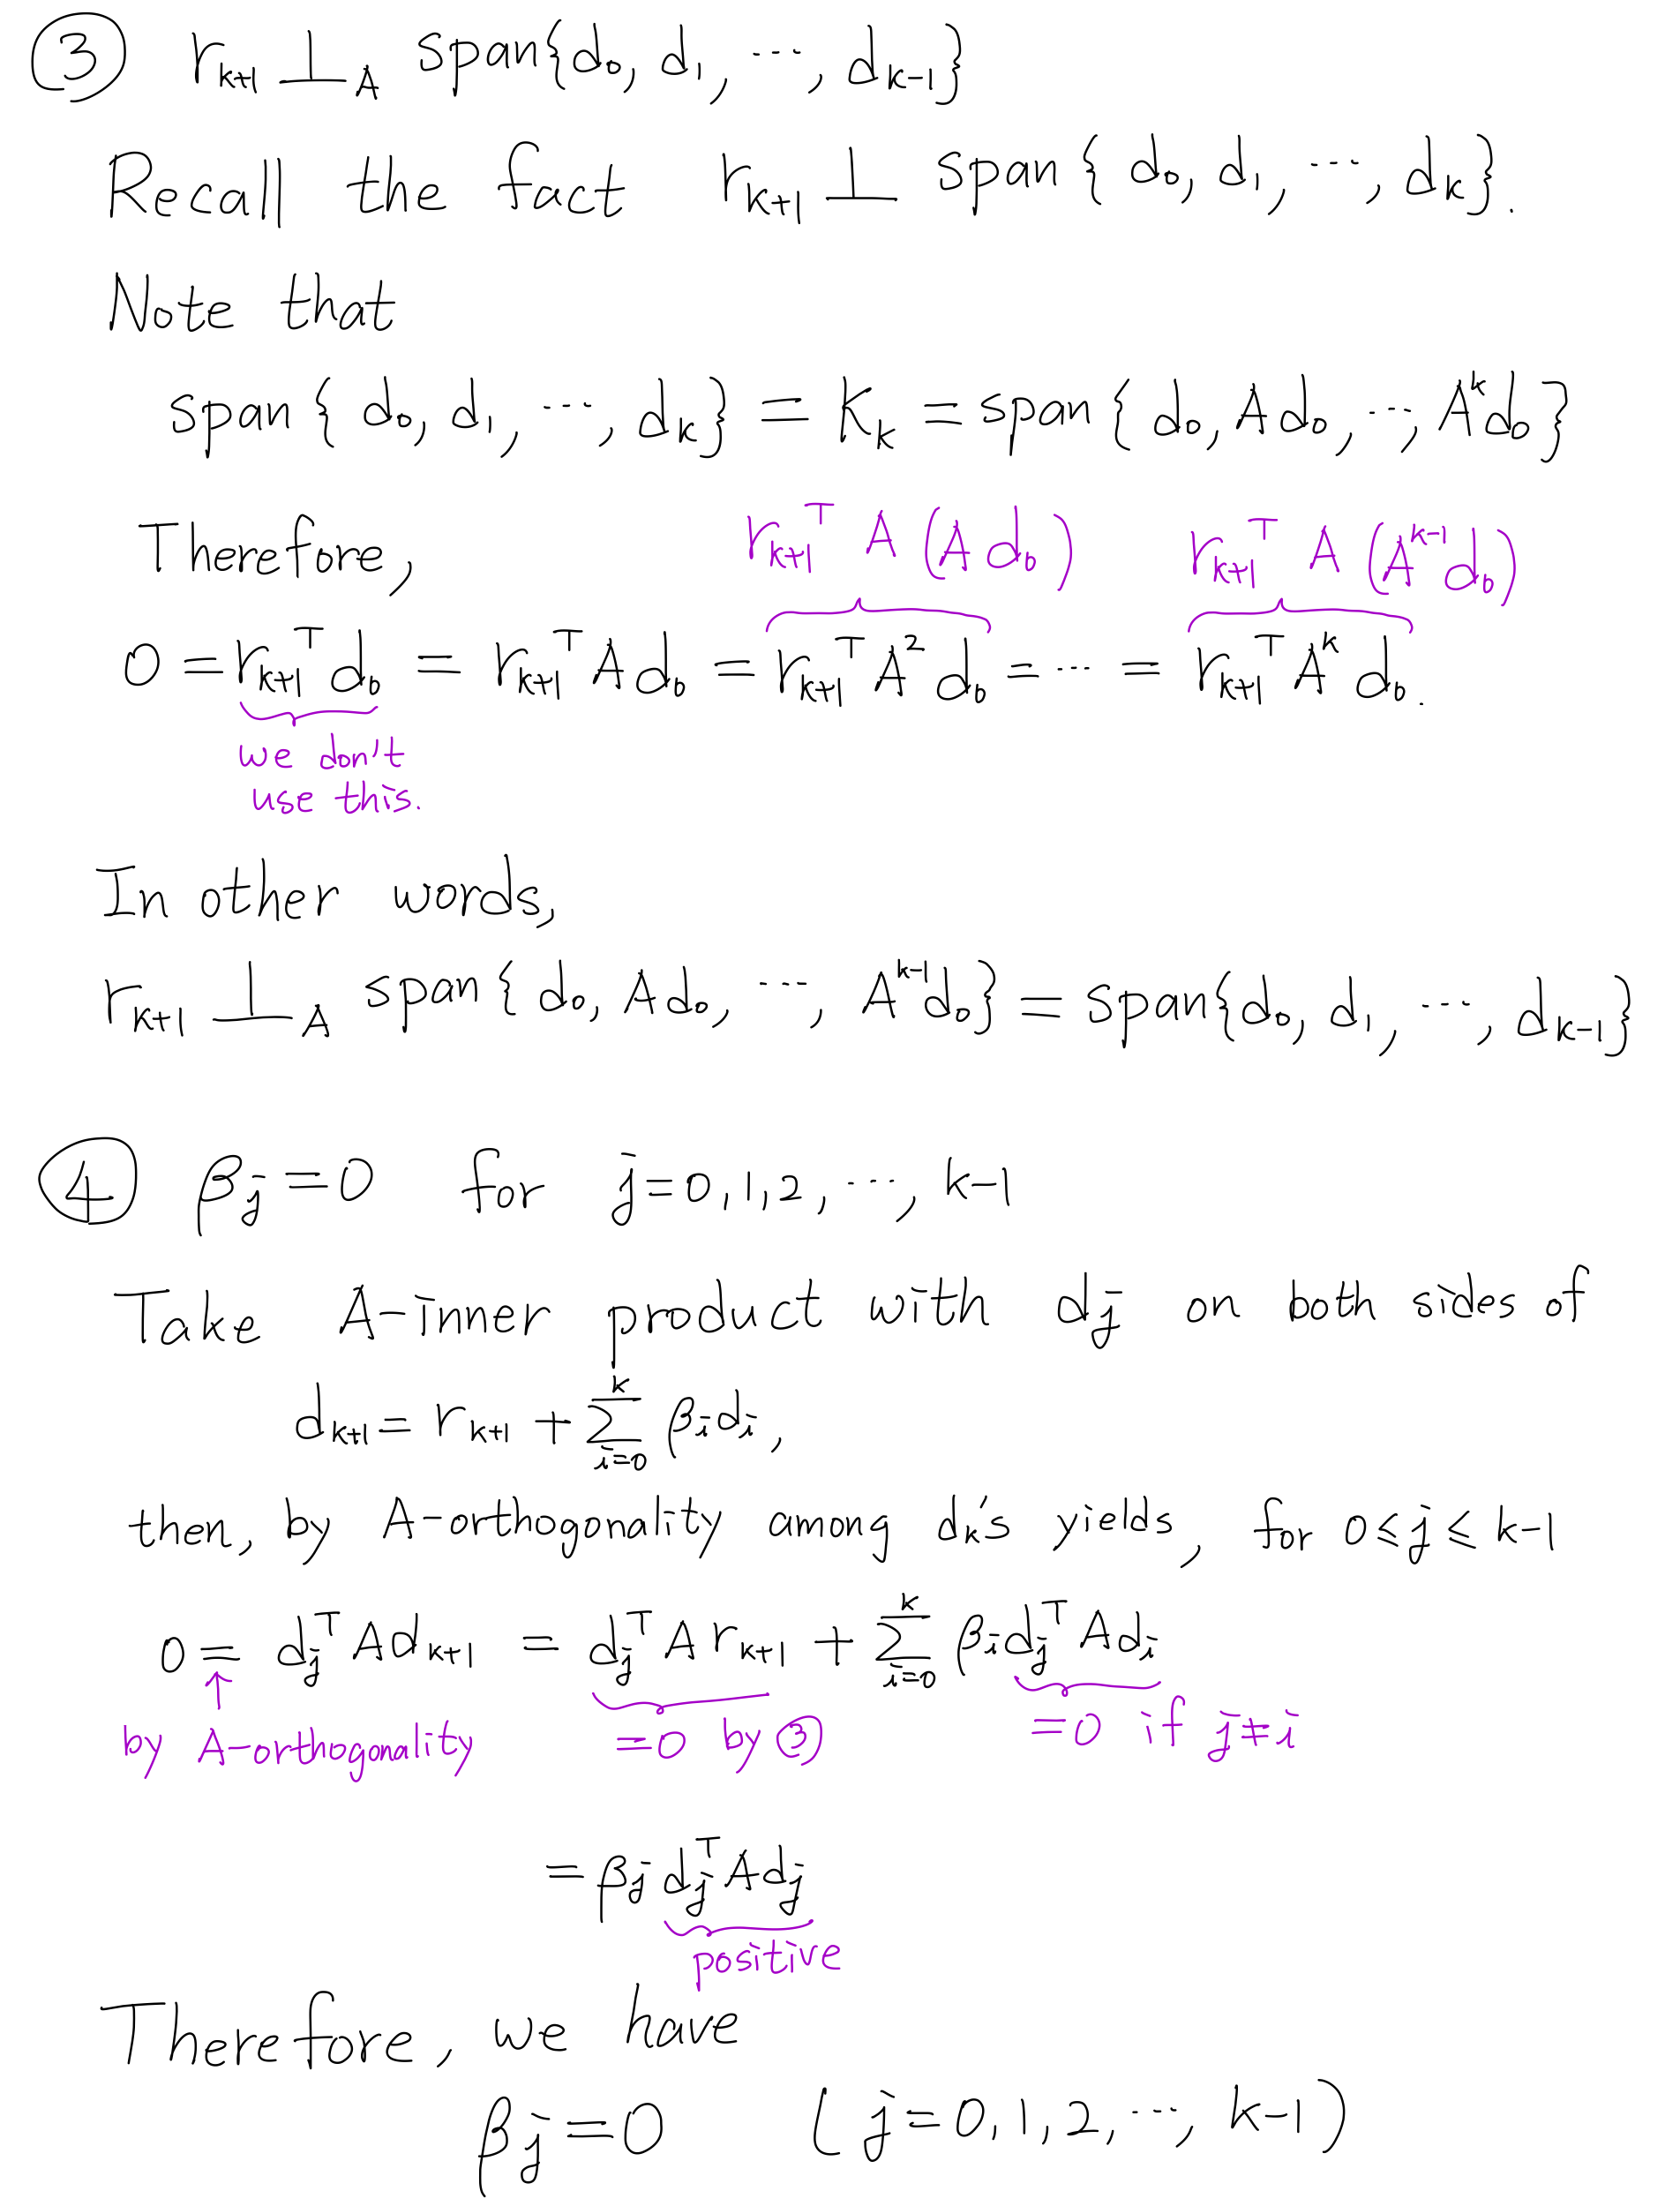 ③ r_{k+1} ⊥_A span{d_0, d_1, ⋯, d_{k-1}}
Recall the fact r_{k+1} ⊥ span{d_0, d_1, ⋯, d_k}.
Note that
span{d_0, d_1, ⋯, d_k} = K_k = span{d_0, Ad_0, ⋯, A^k d_0}
Therefore,
r_{k+1}^T A (Ad_0) r_{k+1}^T A (A^{k-1} d_0)
0 = r_{k+1}^T d_0 = r_{k+1}^T A d_0 = r_{k+1}^T A^2 d_0 = ⋯ = r_{k+1}^T A^k d_0.
we don't
use this.
In other words,
r_{k+1} ⊥_A span{d_0, Ad_0, ⋯, A^{k-1} d_0} = span{d_0, d_1, ⋯, d_{k-1}}
④ β_j = 0 for j = 0, 1, 2, ⋯, k-1
Take A-inner product with d_j on both sides of
d_{k+1} = r_{k+1} + ∑_{i=0}^{k} β_i d_i,
then, by A-orthogonality among d_k's yields, for 0 ≤ j ≤ k-1
0 = d_j^T A d_{k+1} = d_j^T A r_{k+1} + ∑_{i=0}^{k} β_i d_j^T A d_i
↑
by A-orthogonality =0 by ③ =0 if j≠i
= β_j d_j^T A d_j
positive
Therefore, we have
β_j = 0 (j = 0, 1, 2, ⋯, k-1)